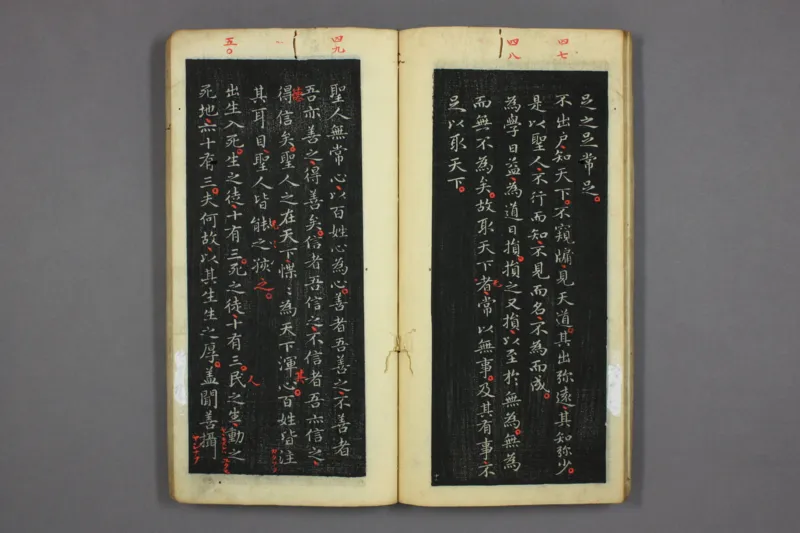 四七
四八
足之足常足。
不出户知天下。不窺牖見天道。其出弥遠其知弥少。
是以聖人不行而知不見而名不為而成。
為學日益為道日損。損之又損以至於無為。無為
而無不為矣。故取天下者常以無事。及其有事不
足以取天下。
四九
五〇
聖人無常心以百姓心為心。善者吾善之不善者
吾亦善之得善矣。信者吾信之不信者吾亦信之
得信矣。聖人之在天下惵〻為天下渾心。百姓皆注
其
其耳目聖人皆之之。
出生入死。生之徒十有三。死之徒十有三。民之生動之
人
死地亦十有三。夫何故以其生生之厚。盖聞善攝